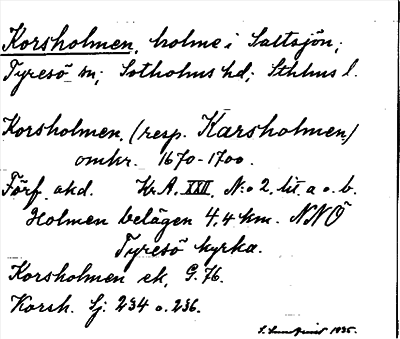 Korsholmen, holme i Saltsjön;
Tyresö sn; Sotholms hd; Sthlms l.
Korsholmen, (resp. Karsholmen)
omkr. 1670-1700.
Förf. akd. Kr. A. XXII, N:o 2, lit. a o. b.
Holmen belägen 4,4 km. NNÖ
Tyresö kyrka.
Korsholmen ek, G. 76.
Korsh. Sj: 234 o. 236.
1935.